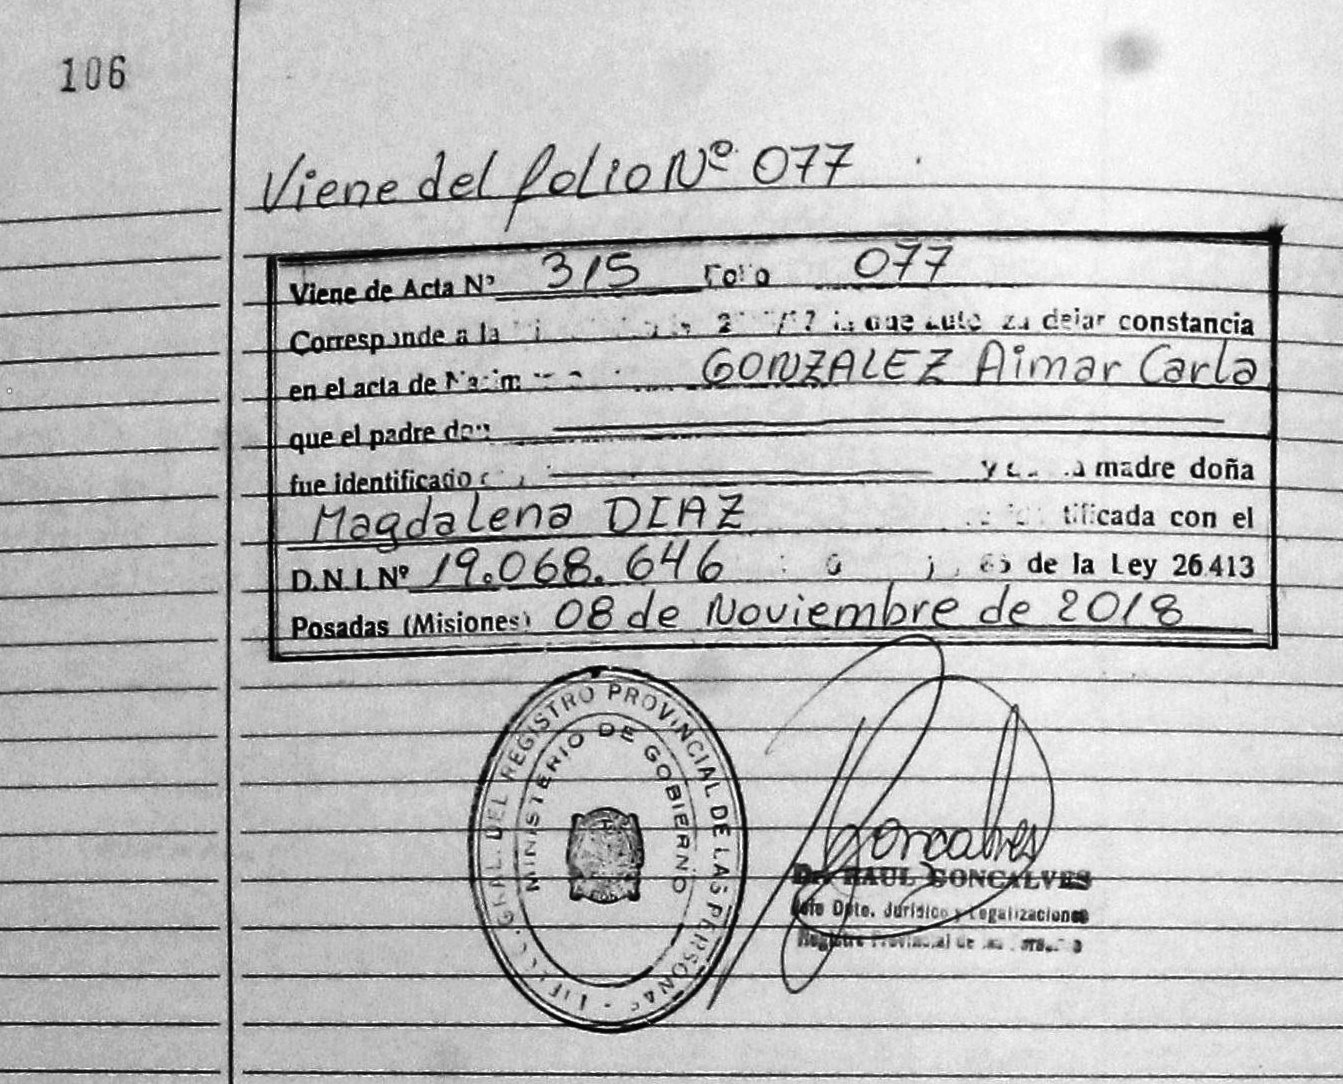 106
Viene del folio Nº 077
Viene de Acta Nº 315 Folio 077
Corresponde a la que dejar constancia
en el acta de GONZALEZ Aimar Carla
que el padre don
fue identificado y madre doña
Magdalena DIAZ tificada con el
D.N.I. Nº 19.068.646 de la Ley 26.413
Posadas (Misiones) 08 de Noviembre de 2018
GRAL. DEL REGISTRO PROVINCIAL DE LAS PERSONAS
MINISTERIO DE GOBIERNO
Goncalves
Dr. RAUL GONCALVES
Jefe Dpto. Jurídico y Legalizaciones
Registro Provincial de las